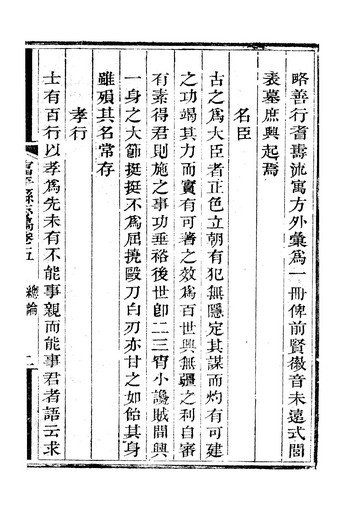 略善行耆壽流寓方外彙為一冊俾前賢徽音未遠式閭
表墓庶興起焉
名臣
古之為大臣者正色立朝有犯無隱定其謀而灼有可建
之功竭其力而實有可著之效為百世興無疆之利自審
有素得君則施之事功垂裕後世卽二三宵小讒賊間興
一身之大節挺挺不為屈撓毀刀白刃亦甘之如飴其身
雖殞其名常存
孝行
士有百行以孝為先未有不能事親而能事君者語云求
富平縣志稿卷五 總論 二